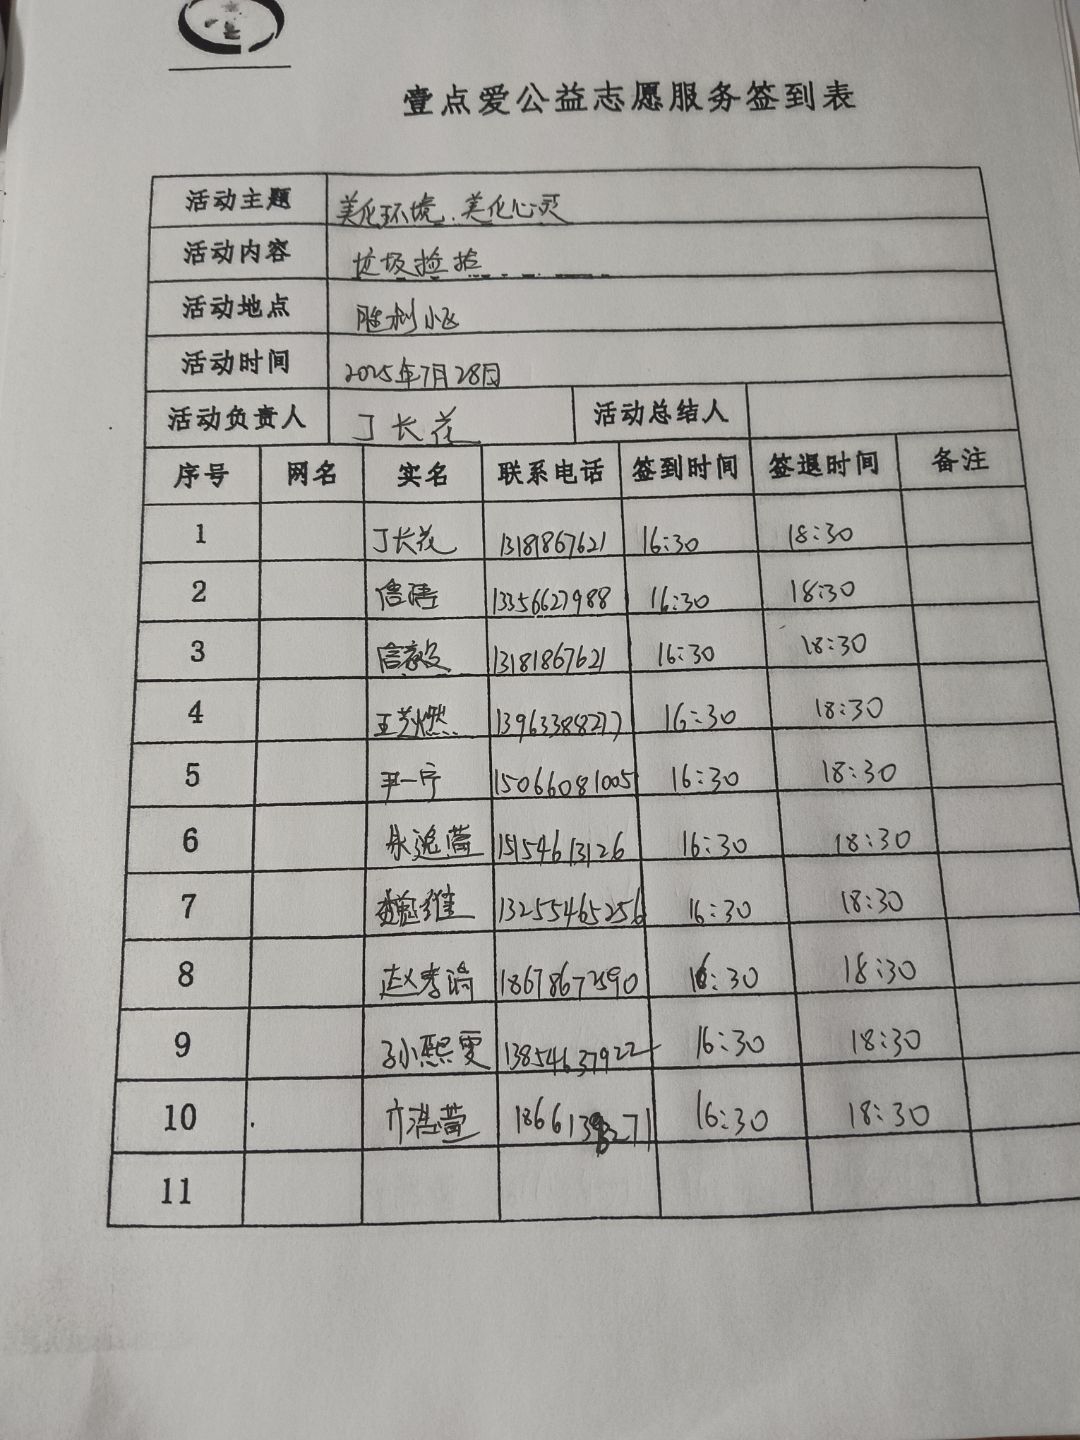 壹点爱公益志愿服务签到表
活动主题 美化环境、美化心灵
活动内容 垃圾捡拾
活动地点 胜利小区
活动时间 2025年7月28日
活动负责人 丁长花 活动总结人
序号 网名 实名 联系电话 签到时间 签退时间 备注
1 丁长花 13181867621 16:30 18:30
2 信 13356627988 16:30 18:30
3 信 13181867621 16:30 18:30
4 王艺燃 13963388277 16:30 18:30
5 尹一宁 15066081005 16:30 18:30
6 15154613126 16:30 18:30
7 魏维 13255465256 16:30 18:30
8 赵孝 18678672590 16:30 18:30
9 孙熙雯 13854637922 16:30 18:30
10 16:30 18:30
11